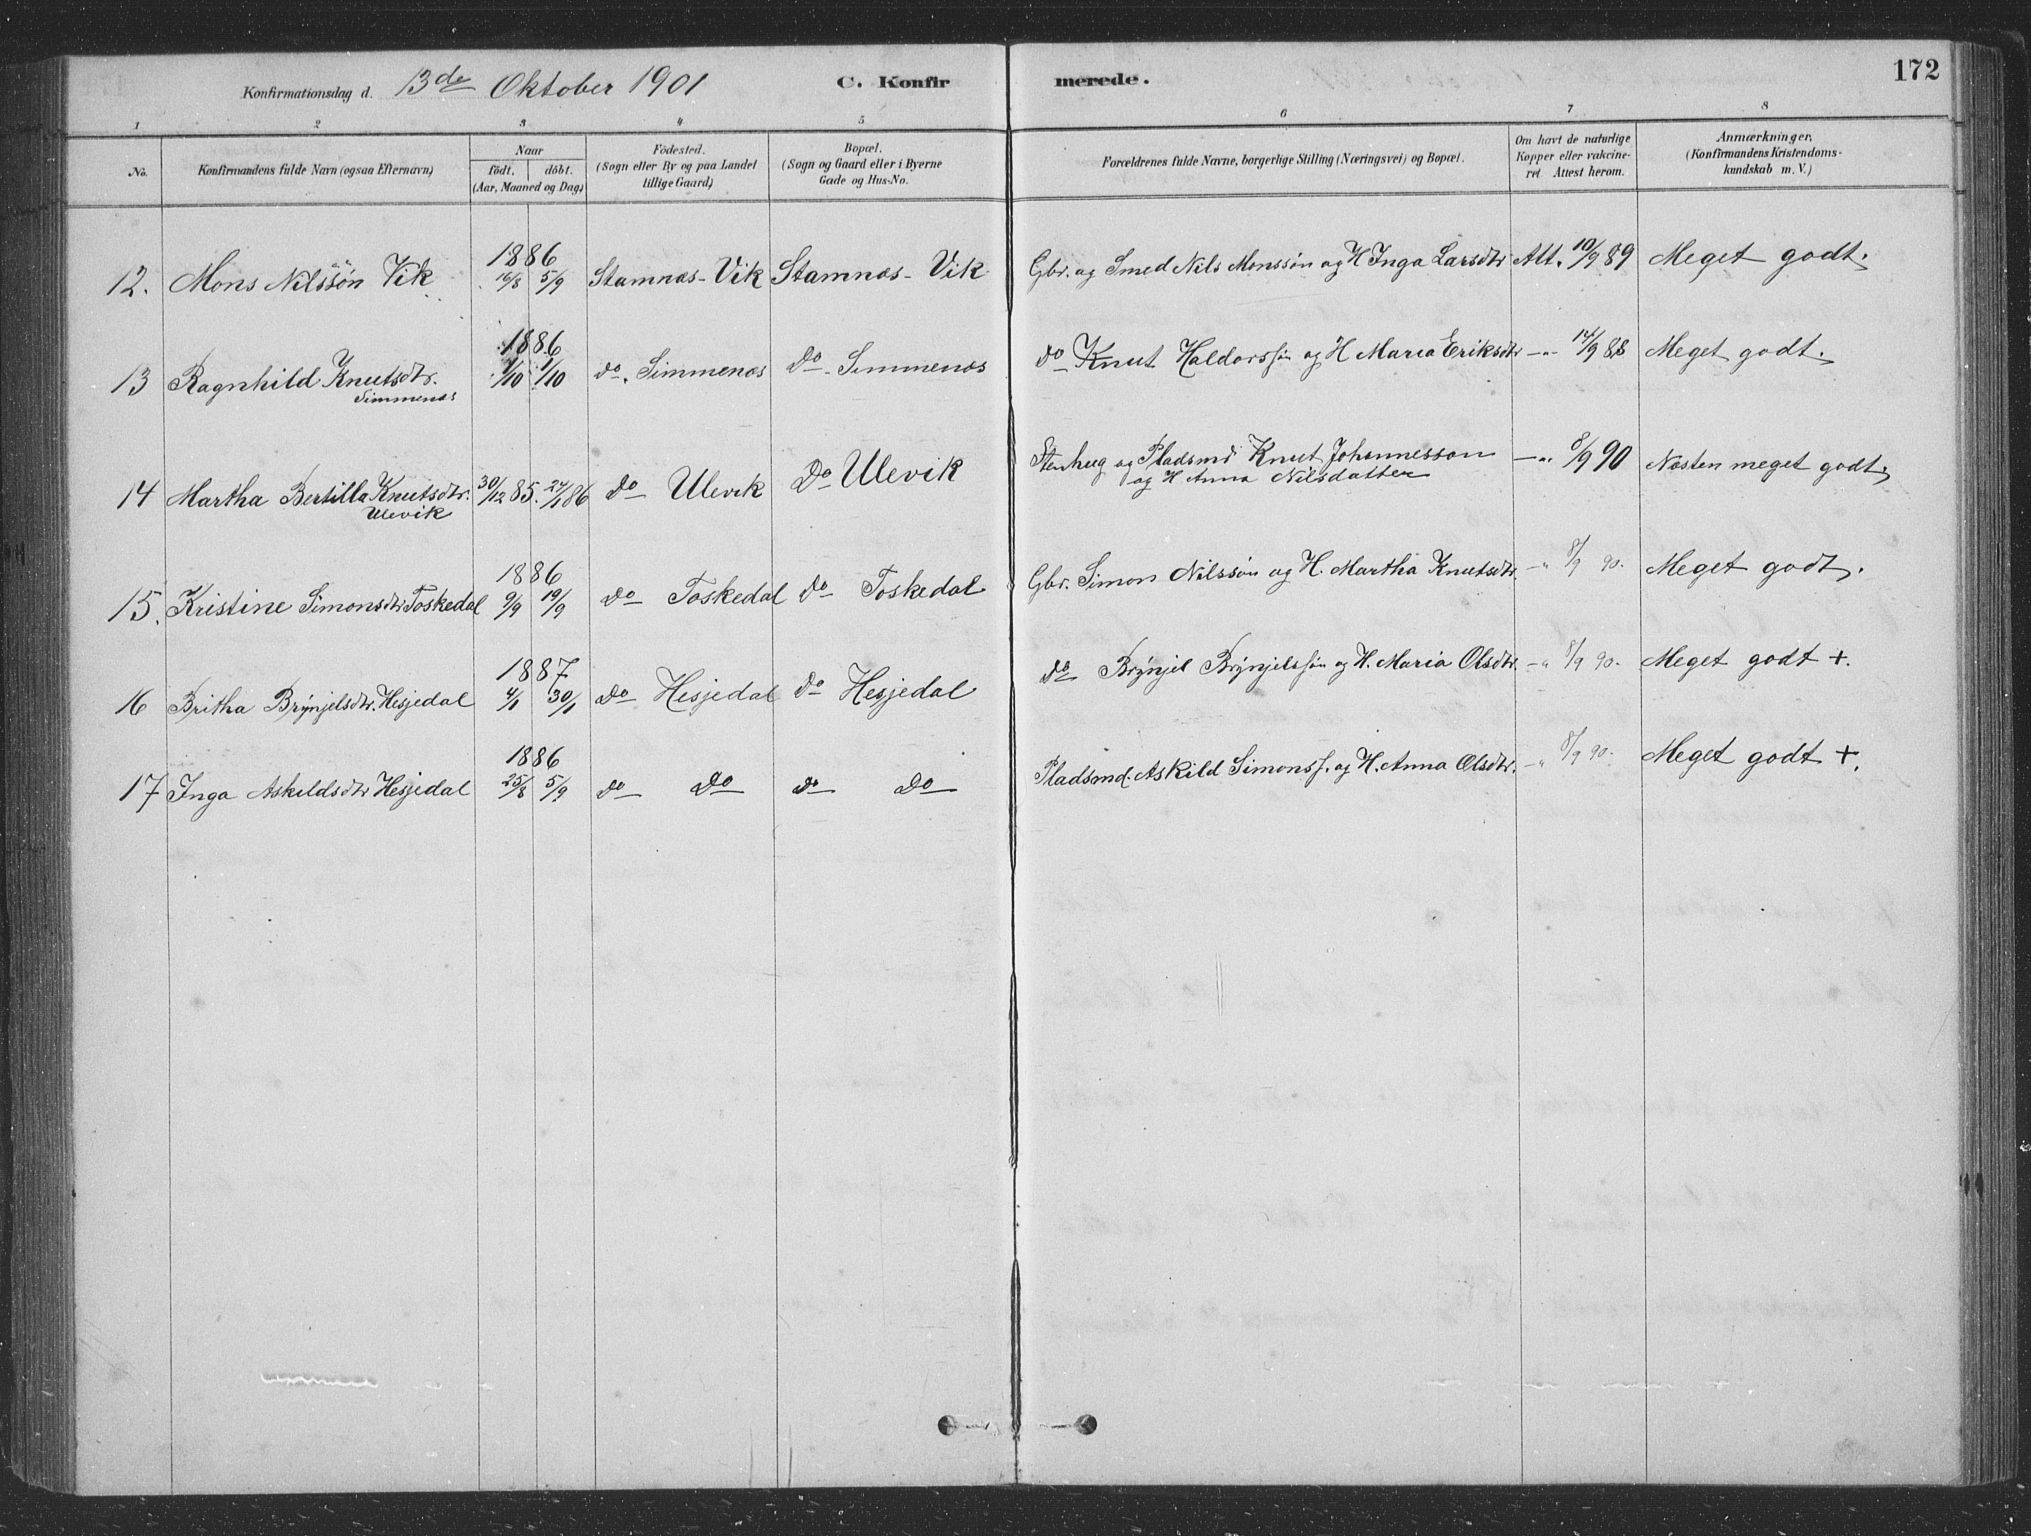 172
Konfirmationsdag d. 13de Oktober 1901 C. Konfirmerede.
1 2 3 4 5 6 7 8
No.
Konfirmandens fulde Navn (ogsaa Efternavn)
Naar
födt. döbt.
(Aar, Maaned og Dag)
Födested.
(Sogn eller By og paa Landet
tillige Gaard)
Bopæl.
(Sogn og Gaard eller i Byerne
Gade og Hus-No.
Forældrenes fulde Navne, borgerlige Stilling (Næringsvei) og Bopæl.
Om havt de naturlige
Kopper eller vakcine-
ret Attest herom.
Anmærkninger.
(Konfirmandens Kristendoms-
kundskab m. V.)
1886
12. Mons Nilssön Vik 16/8 5/9 Stamnæs - Vik Stamnæs - Vik Gbr. og Smed Nils Monssön og H Inga Larsdtr Att. 10/9 89 Meget godt.
1886
13 Ragnhild Knutsdtr. 1/10 1/10 do. Simmenæs do - Simmenæs do Knut Haldorssön og H Maria Eriksdtr -"- 14/9 88 Meget godt.
Simmenæs
14 Martha Bertilla Knutsdtr. 30/12 85. 24/1 86 do Ulevik Do Ulevik Stenhug og Pladsmd Knut Johannesson -"- 8/9 90 Næsten meget godt.
Ulevik og H Anna Nilsdatter
1886
15. Kristine Simonsdtr Toskedal 9/9 19/9 do Toskedal do Toskedal Gbr. Simon Nilssön og H. Martha Knutsdtr. -"- 8/9 90. Meget godt.
1887
16 Britha Brynjelsdtr. Hesjedal 4/1 30/1 do Hesjedal do Hesjedal do Brynjel Brynjelssön og H. Maria Olsdtr. -"- 8/9 90. Meget godt +.
1886
17 Inga Askildsdtr Hesjedal 25/8 5/9 do Do do Do Pladsmd. Askild Simonss. og H. Anna Olsdtr. -"- 8/9 90. Meget godt +.